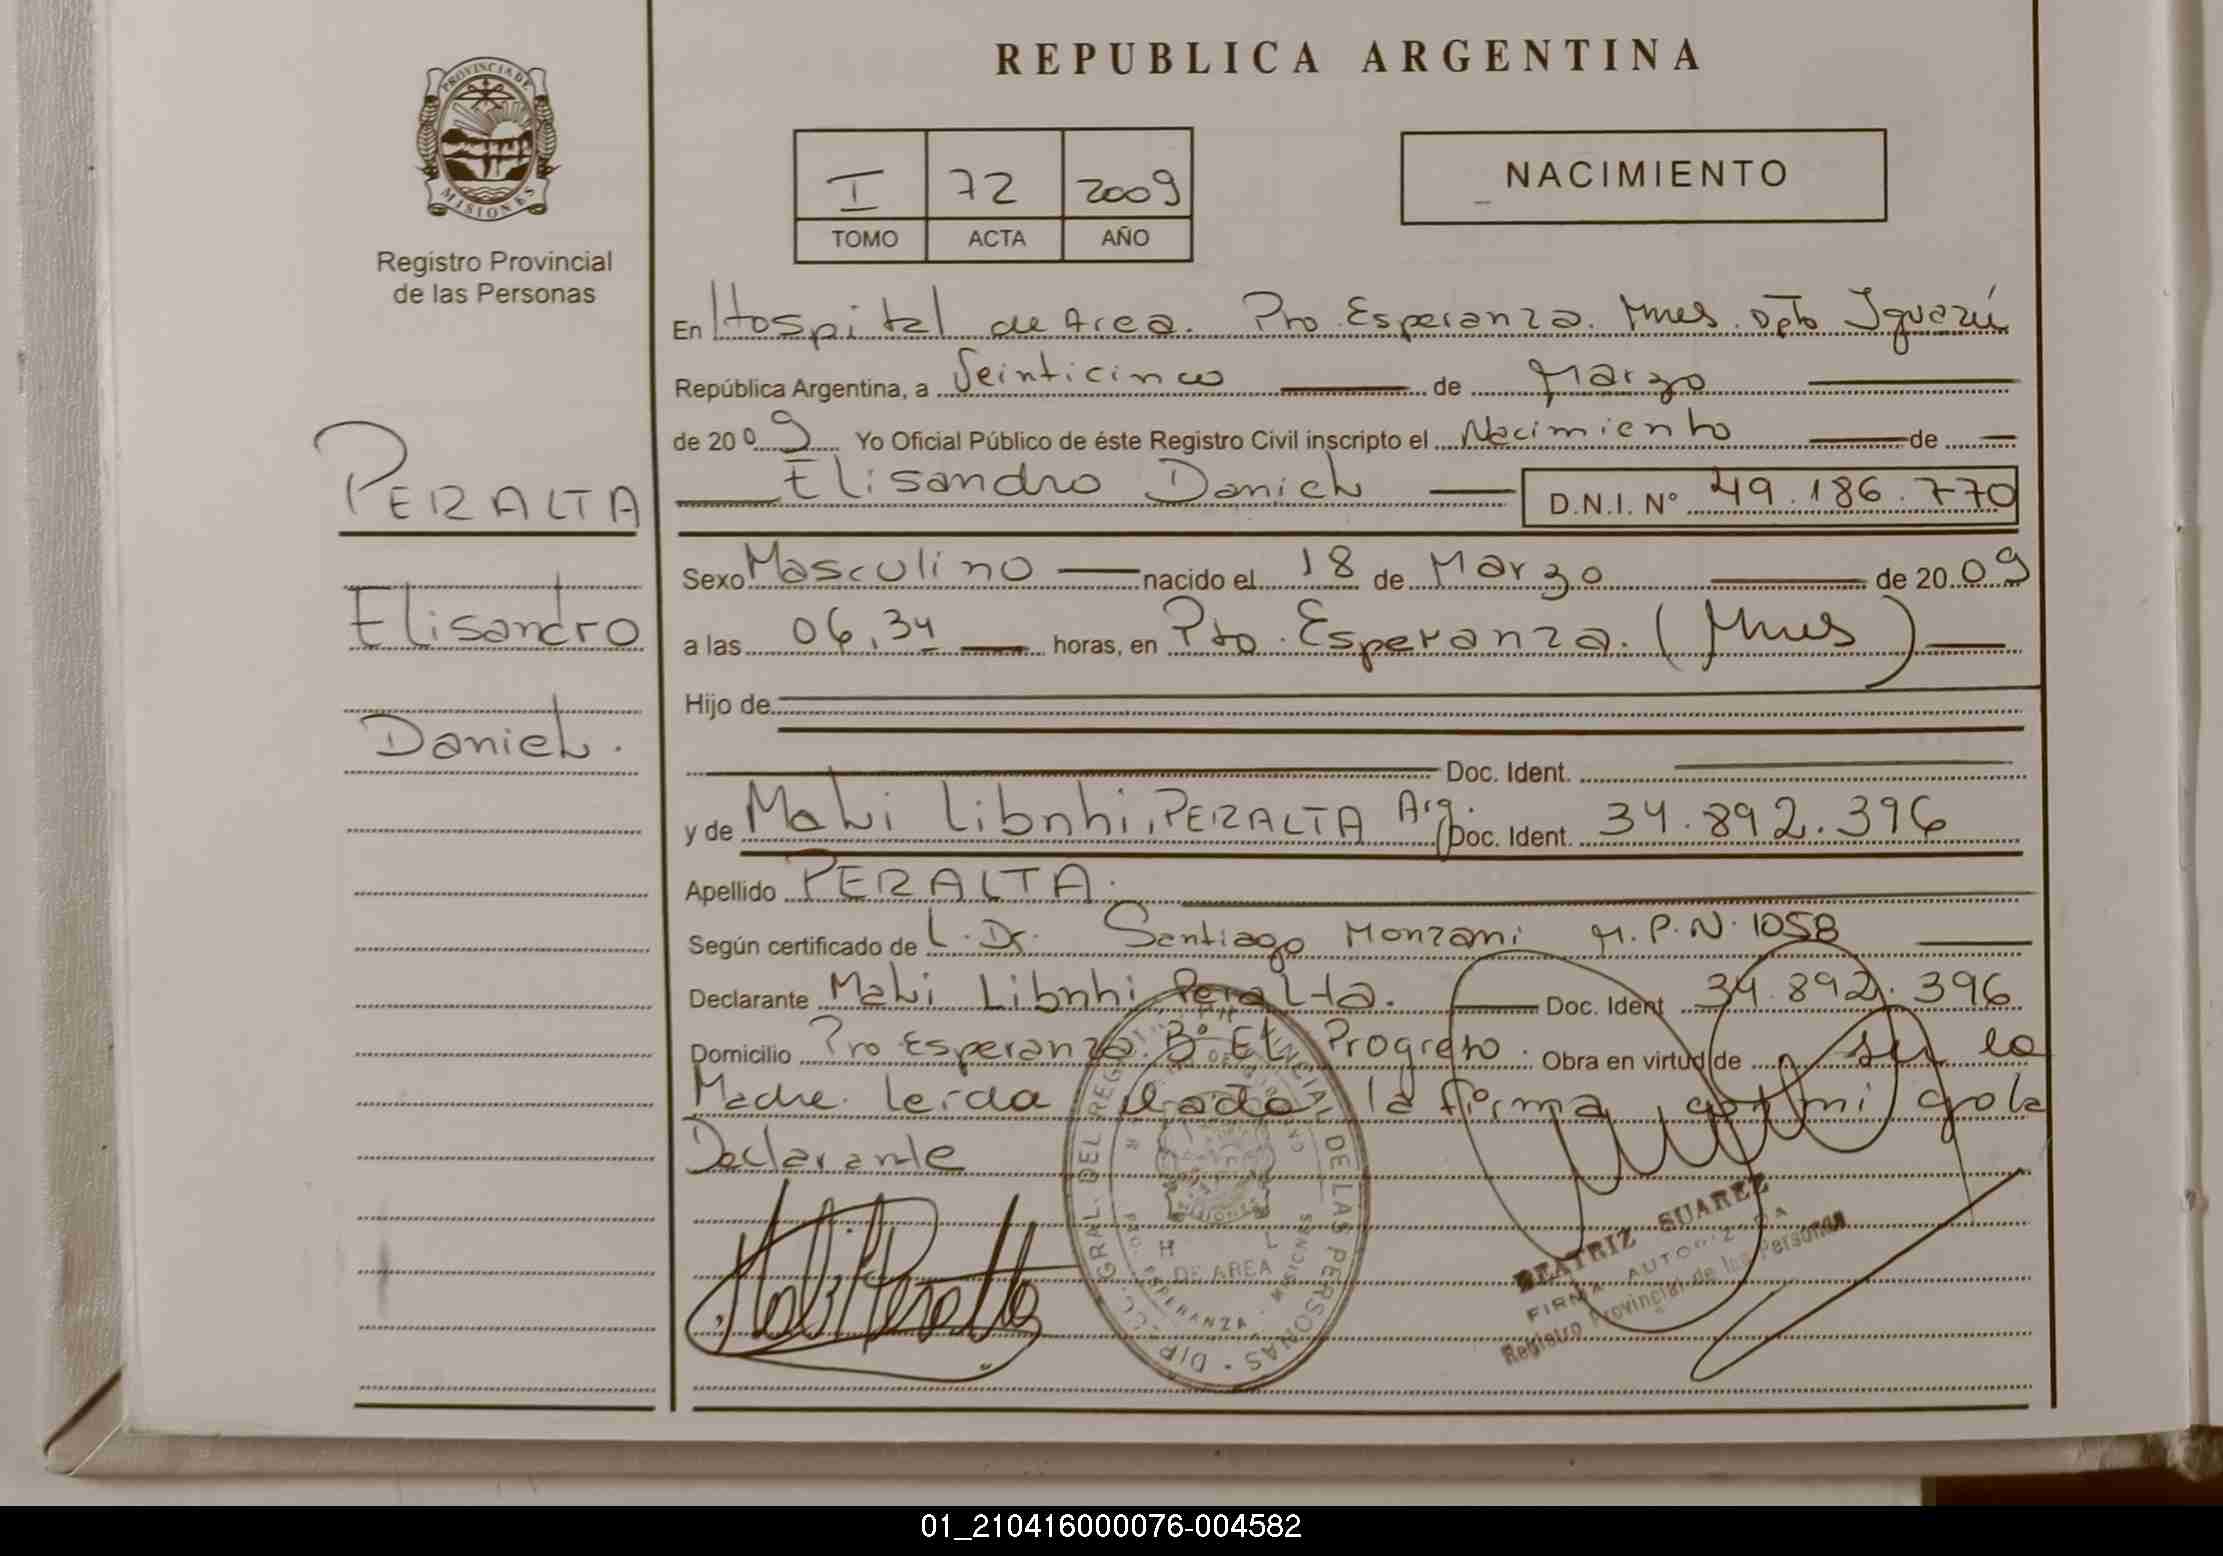 REPUBLICA ARGENTINA
PROVINCIA DE
MISIONES
Registro Provincial
de las Personas
I 72 2009
TOMO ACTA AÑO
NACIMIENTO
En Hospital de Area. Pto Esperanza. Mnes. Dpto Iguazú
República Argentina, a Veinticinco de Marzo
de 2009 Yo Oficial Público de éste Registro Civil inscripto el Nacimiento de
Elisandro Daniel D.N.I. N° 49.186.770
PERALTA
Elisandro
Daniel.
Sexo Masculino nacido el 18 de Marzo de 2009
a las 06,34 horas, en Pto. Esperanza. (Mnes)
Hijo de
Doc. Ident.
y de Mali Libnhi, PERALTA Arg. Doc. Ident. 34.892.396
Apellido PERALTA.
Según certificado de L. Dr. Santiago Monzani M.P.N. 1058
Declarante Mali Libnhi Peralta. Doc. Ident 34.892.396
Domicilio Pto Esperanza B° El Progreso. Obra en virtud de ser la
Madre. leída la firma mi
Declarante
Mali Peralta
DIR. GRAL. DEL REG. PROVINCIAL DE LAS PERSONAS
DE AREA
PTO. ESPERANZA - MISIONES
BEATRIZ SUAREZ
FIRMA AUTORIZADA
Registro Provincial de las Personas
01_210416000076-004582